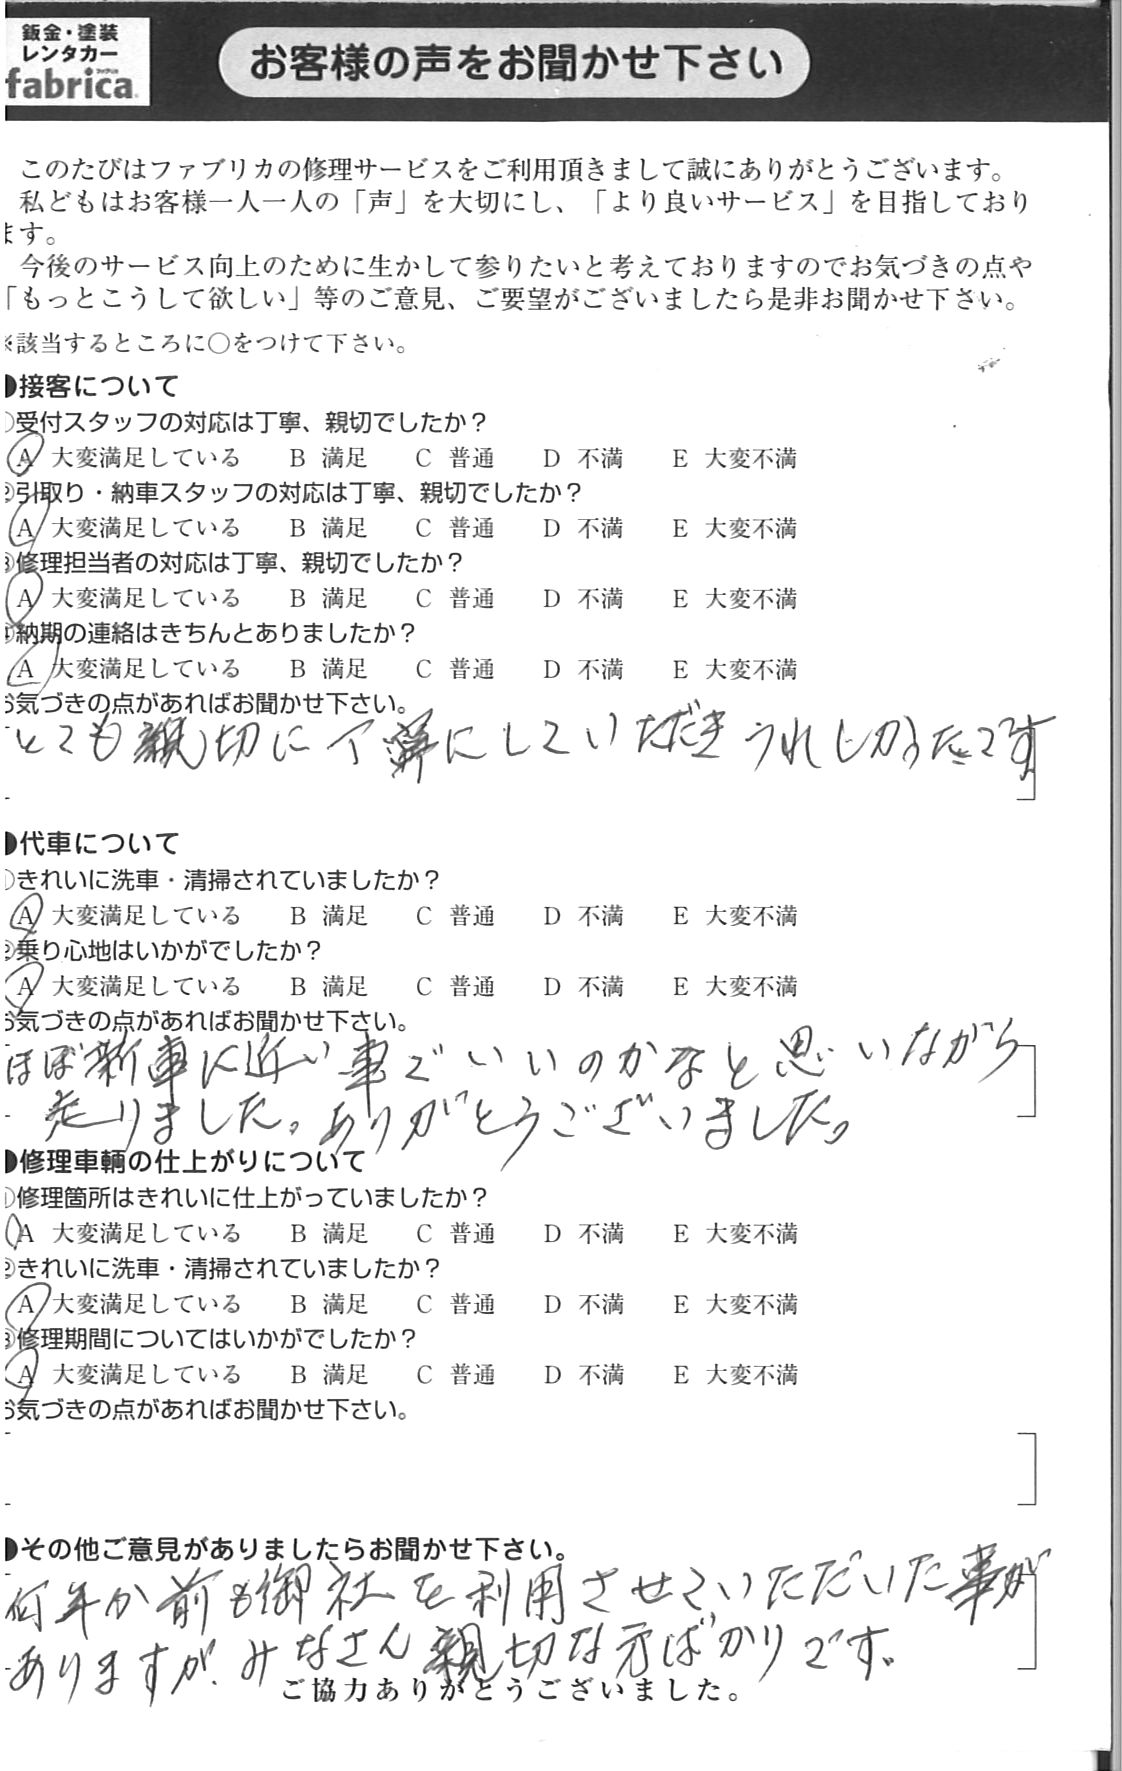 鈑金・塗装
レンタカー
fabrica
お客様の声をお聞かせ下さい
このたびはファブリカの修理サービスをご利用頂きまして誠にありがとうございます。
私どもはお客様一人一人の「声」を大切にし、「より良いサービス」を目指しており
ます。
今後のサービス向上のために生かして参りたいと考えておりますのでお気づきの点や
「もっとこうして欲しい」等のご意見、ご要望がございましたら是非お聞かせ下さい。
※該当するところに〇をつけて下さい。
●接客について
①受付スタッフの対応は丁寧、親切でしたか？
A 大変満足している B 満足 C 普通 D 不満 E 大変不満
②引取り・納車スタッフの対応は丁寧、親切でしたか？
A 大変満足している B 満足 C 普通 D 不満 E 大変不満
③修理担当者の対応は丁寧、親切でしたか？
A 大変満足している B 満足 C 普通 D 不満 E 大変不満
④納期の連絡はきちんとありましたか？
A 大変満足している B 満足 C 普通 D 不満 E 大変不満
お気づきの点があればお聞かせ下さい。
とても親切に丁寧にしていただきうれしかったです
●代車について
①きれいに洗車・清掃されていましたか？
A 大変満足している B 満足 C 普通 D 不満 E 大変不満
②乗り心地はいかがでしたか？
A 大変満足している B 満足 C 普通 D 不満 E 大変不満
お気づきの点があればお聞かせ下さい。
ほぼ新車に近い車でいいのかなと思いながら
走りました。ありがとうございました。
●修理車輌の仕上がりについて
①修理箇所はきれいに仕上がっていましたか？
A 大変満足している B 満足 C 普通 D 不満 E 大変不満
②きれいに洗車・清掃されていましたか？
A 大変満足している B 満足 C 普通 D 不満 E 大変不満
③修理期間についてはいかがでしたか？
A 大変満足している B 満足 C 普通 D 不満 E 大変不満
お気づきの点があればお聞かせ下さい。
●その他ご意見がありましたらお聞かせ下さい。
何年か前も御社を利用させていただいた事が
ありますが、みなさん親切な方ばかりです。
ご協力ありがとうございました。